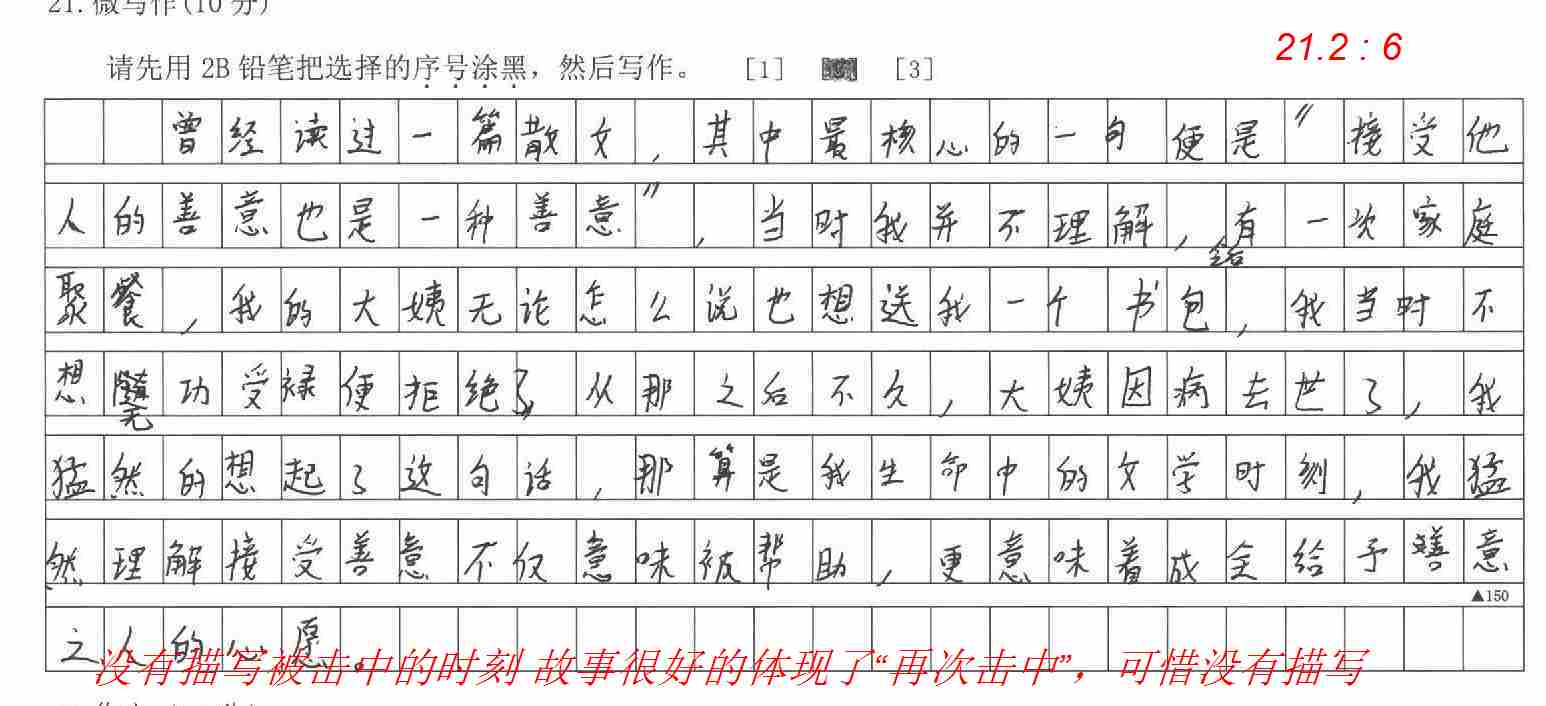 21.微写作(10分)
21.2 : 6
请先用 2B 铅笔把选择的序号涂黑，然后写作。 [1] [3]
曾经读过一篇散文，其中最核心的一句便是“接受他
人的善意也是一种善意”，当时我并不理解，有一次家庭
聚餐，我的大姨无论怎么说也想送我一个书包，我当时不
想无功受禄便拒绝了，从那之后不久，大姨因病去世了，我
猛然的想起了这句话，那算是我生命中的文学时刻，我猛
然理解接受善意不仅意味被帮助，更意味着成全给予善意
▲150
之人的心愿。
没有描写被击中的时刻 故事很好的体现了“再次击中”，可惜没有描写